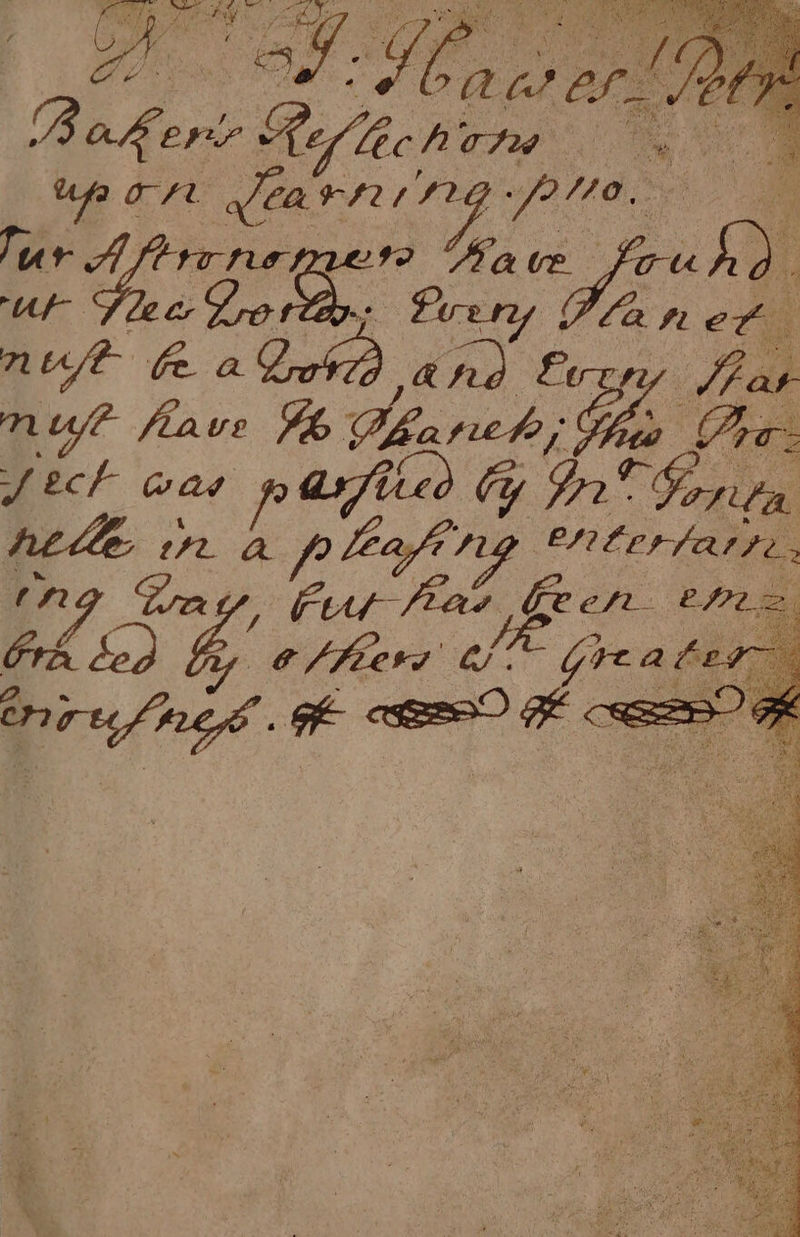 J: Hawes! Petr
Baker's Reflections
upon Learning . p 110.
Our Astronomers have found
out New Worlds; Every Planet
must be a World, and Every Star
must have its Planets; This Pro=
ject was pursued by Mr. Fonta
nelle in a pleasing entertain=
ing Way, but has been em=
braced by others wth Greater